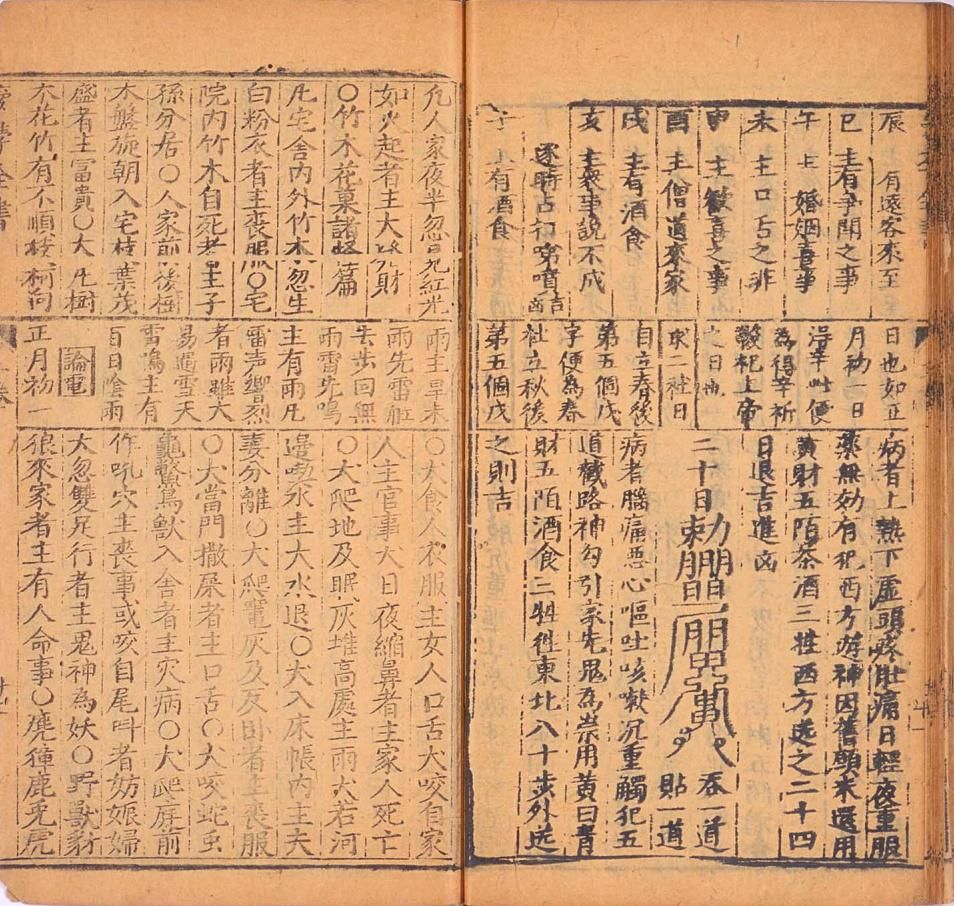 辰
有遠客來至
巳 主有爭鬧之事
午 主婚姻喜事
未 主口舌之非
申 主歡喜之事
酉 主僧道來家
戌 主有酒食
亥 主喪事說不成
逐時占 嚏噴吉凶
子 主有酒食
日也如正
月初一日
得辛此便
為得辛祈
穀祀上帝
之日也
二社日
自立春後
第五個戊
字便為春
社立秋後
第五個戊
病者上熱下虛頭疼肚痛日輕夜重服
藥無効有犯西方遊神因舊願未還用
黃財五陌茶酒三牲西方送之二十四
日退吉進凶
二十日
吞一道
貼一道
病者腦痛惡心嘔吐咳嗽沉重觸犯五
道截路神勾引家先鬼為祟用黃白青
財五陌酒食二牲徃東北八十步外送
之則吉
凡人家夜半忽見紅光
如火起者主大 財
〇竹木花菓諸怪篇
凡宅舍內外竹木忽生
白粉衣者主喪服〇宅
院內竹木自死者主子
孫分居〇人家前後樹
木盤旋朝入宅枝葉茂
盛者主富貴〇大凡樹
木花竹有不順枝 向
雨主旱未
雨先雷
去步回無
雨雷先鳴
主有雨凡
雷声響烈
者雨雖大
易過雪天
雷鳴主有
百日陰雨
論電
正月初一
〇犬食人衣服主女人口舌犬咬自家
人主官事犬日夜縮鼻者主家人死亡
〇犬爬地及眠灰堆高處主雨犬若河
邊喫水主大水退〇犬入床帳內主夫
妻分離〇犬爬竈灰及反卧者主喪服
〇犬當門撒屎者主口舌〇犬咬蛇虫
龜鱉鳥獸入舍者主灾病〇犬爬庭前
作吼穴主喪事或咬自尾呌者妨娠婦
犬忽雙足行者主鬼神為妖〇野獸豺
狼來家者主有人命事〇麂獐鹿兎虎